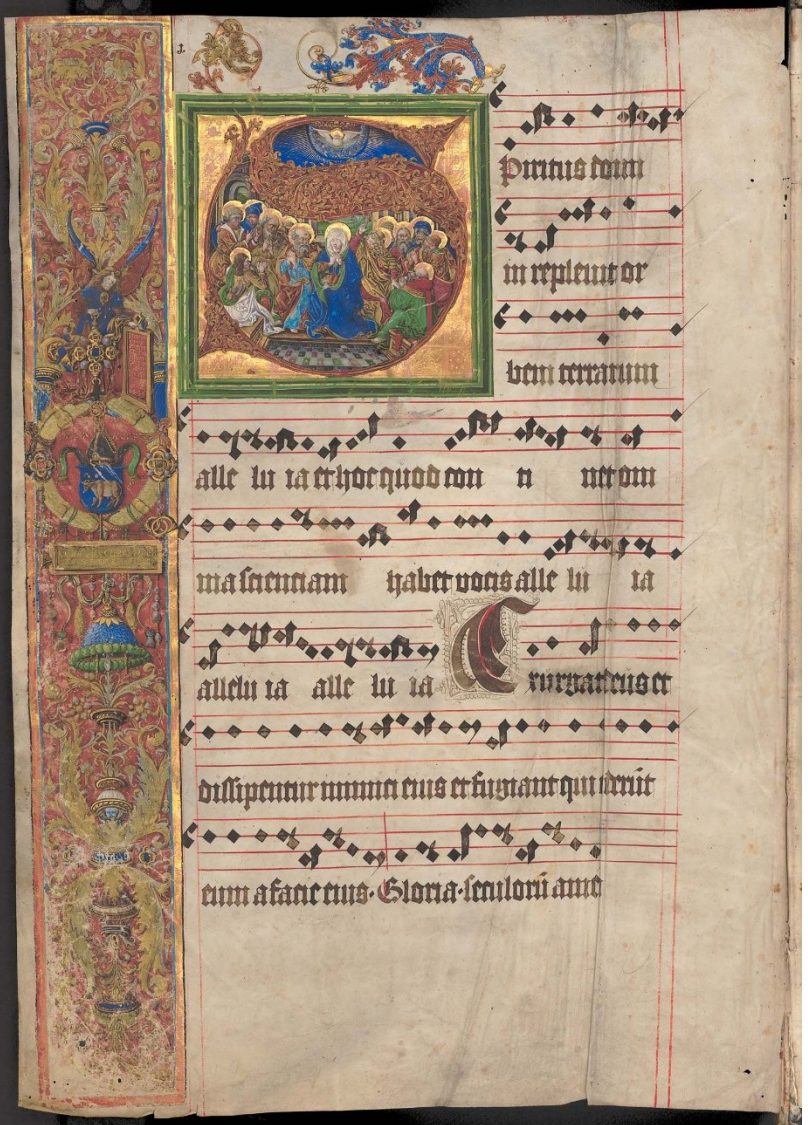 1
Spiritus domi
ni repleuit or
bem terrarum
alle lu ia et hoc quod con ti net om
nia scienciam habet uocis alle lu ia
allelu ia alle lu ia Exurgat deus et
dissipentur inimici eius et fugiant qui oderūt
eum a facie eius · Gloria · seculorū ame